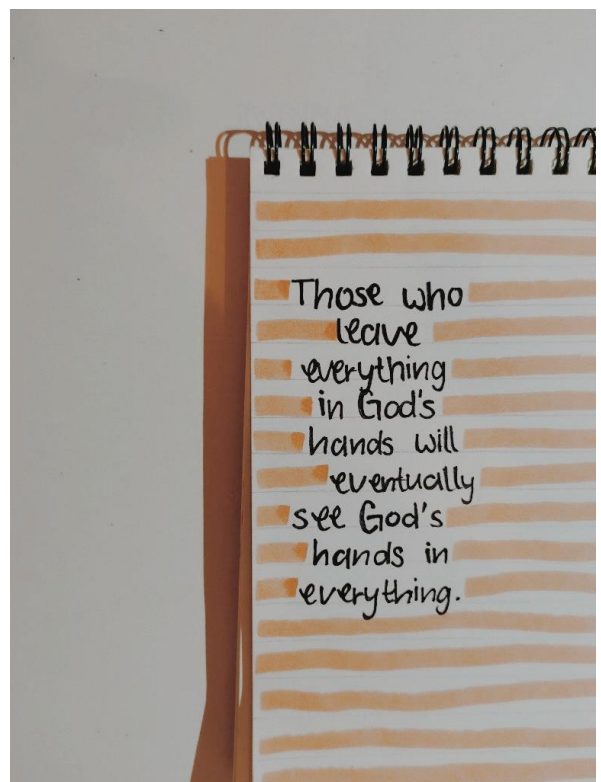 Those who
leave
everything
in God's
hands will
eventually
see God's
hands in
everything.